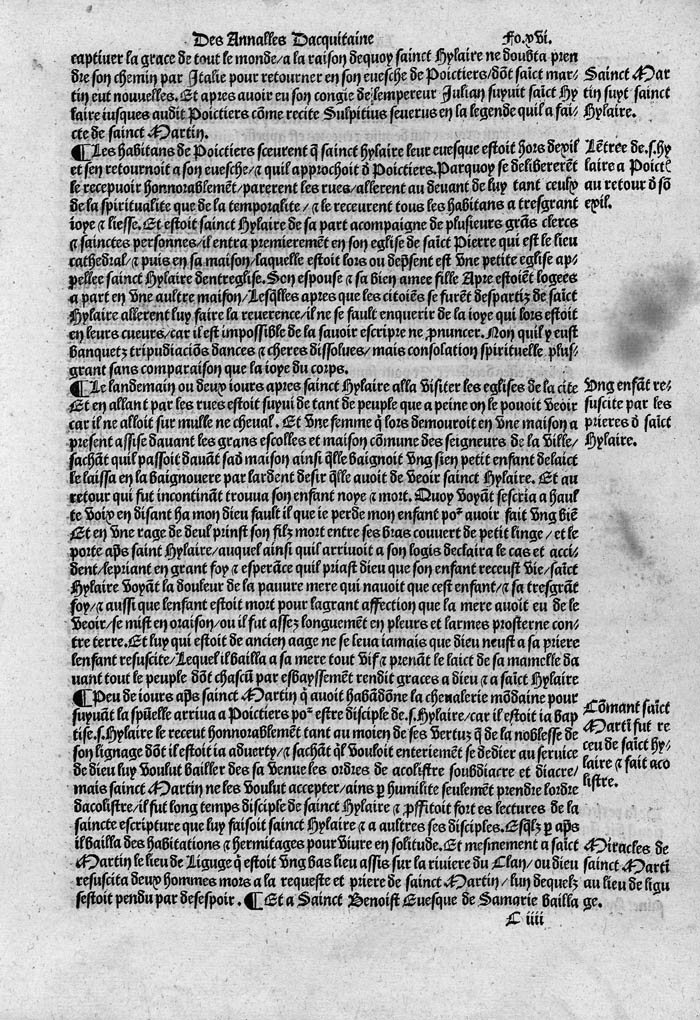 Des Annalles Dacquitaine Fo.xvi.
captiver la grace de tout le monde/a la raison dequoy sainct Hylaire ne doubta pren
dre son chemin par Italie pour retourner en son evesche de Poictiers/dõt saict mar-
tin eut nouvelles. Et apres avoir eu son congie de lempereur Julian suyuit saict Hy
laire iusques audit Poictiers cõme recite Sulpitius severus en la legende quil a fai-
cte de sainct Martin.
Sainct Mar
tin suyt sainct
Hylaire.
¶Les habitans de Poictiers sceurent q̃ sainct hylaire leur evesque estoit hors dexil
et sen retournoit a son evesche/⁊ quil approchoit d̾ Poictiers. Parquoy se delibererẽt
le recepvoir honnorablemẽt/parerent les rues/allerent au devant de luy tant ceulx
de la spiritualite que de la temporalite/⁊ le receurent tous les habitans a tresgrant
ioye ⁊ liesse. Et estoit sainct Hylaire de sa part acompaigne de plusieurs grãs clercs
⁊ sainctes personnes/il entra premieremẽt en son eglise de saict Pierre qui est le lieu
cathedral/⁊ puis en sa maison/laquelle estoit lors ou dep̃sent est vne petite eglise ap-
pellee sainct Hylaire dentreglise. Son espouse ⁊ sa bien amee fille Apre estoiẽt logees
a part en vne aultre maison/Lesq̃lles apres que les citoiẽs se furẽt despartiz de saict
Hylaire allerent luy faire la reverence/il ne se fault enquerir de la ioye qui lors estoit
en leurs cueurs/car il est impossible de la savoir escripre ne ꝓnuncer. Non quil y eust
banquetz tripudiaciõs dances ⁊ cheres dissolues/mais consolation spirituelle plus-
grant sans comparaison que la ioye du corps.
Lẽtree de.s.hy
laire a Poictr̃
au retour d̾ sõ
exil.
¶Le landemain ou deux iours apres sainct Hylaire alla visiter les eglises de la cite
Et en allant par les rues estoit suyui de tant de peuple que a peine on le povoit veoir
car il ne alloit sur mulle ne cheval. Et vne femme q̃ lors demouroit en vne maison a
present assise davant les grans escolles et maison cõmune des seigneurs de la ville/
sachãt quil passoit davãt sad̾ maison ainsi q̃lle baignoit vng sien petit enfant delaict
le laissa en la baignouere par lardent desir q̃lle avoit de veoir sainct Hylaire. Et au
retour qui fut incontinãt trouva son enfant noye ⁊ mort. Quoy voyãt sescria a haul
te voix en disant ha mon dieu fault il que ie perde mon enfant poꝰ avoir fait vng biẽ
Et en vne rage de deul prinst son filz mort entre ses bras couvert de petit linge/et le
porte ap̃s saint Hylaire/auquel ainsi quil arrivoit a son logis declaira le cas et acci-
dent/lepriant en grant foy ⁊ esperãce quil priast dieu que son enfant receust vie/saict
Hylaire voyãt la douleur de la pauvre mere qui navoit que cest enfant/⁊ sa tresgrãt
foy/⁊ aussi que lenfant estoit mort pour lagrant affection que la mere avoit eu de le
veoir/se mist en oraison/ou il fut assez longuemẽt en pleurs et larmes prosterne con-
tre terre. Et luy qui estoit de ancien aage ne se leva iamais que dieu neust a sa priere
lenfant resuscite/Lequel il bailla a sa mere tout vif ⁊ prenãt le laict de sa mamelle da
vant tout le peuple dõt chascũ par esbayssemẽt rendit graces a dieu ⁊ a saict Hylaire
Vng enfãt re-
suscite par les
prieres d̾ saict
Hylaire.
¶Peu de iours ap̃s sainct Martin q̃ avoit habãdõne la chevalerie mõdaine pour
suyvãt la spũelle arriva a Poictiers poꝰ estre disciple de.s.Hylaire/car il estoit ia bap
tise.s.Hylaire le receut honnorablemẽt tant au moien de ses vertuz q̃ de la noblesse de
son lignage dõt il estoit ia adverty/⁊ sachãt q̃l vouloit enteriemẽt se dedier au service
de dieu luy voulut bailler des sa venue les ordres de acolistre soubdiacre et diacre/
mais sainct Martin ne les voulut accepter/ains ꝑ humilite seulemẽt prendre lordre
dacolistre/il fut long temps disciple de sainct Hylaire ⁊ ꝓffitoit fort es lectures de la
saincte escripture que luy faisoit sainct Hylaire ⁊ a aultres ses disciples. Esq̃lz ꝑ ap̃s
il bailla des habitations ⁊ hermitages pour vivre en solitude. Et mesmement a saict
Martin le lieu de Liguge q̃ estoit vng bas lieu assis sur la riviere du Clan/ou dieu
resuscita deux hommes mors a la requeste et priere de sainct Martin/lun dequelz
sestoit pendu par desespoir. ¶Et a Sainct Benoist Evesque de Samarie bailla
Cõmant saict
Martĩ fut re
ceu de saict hy-
laire ⁊ fait aco
listre.
Miracles de
sainct Martĩ
au lieu de ligu
ge.
C iiii